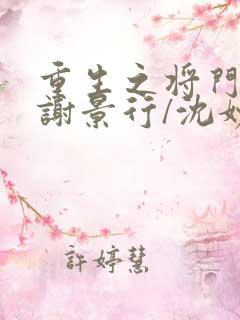 重生之将門
謝景行/沈妙
許婷慧